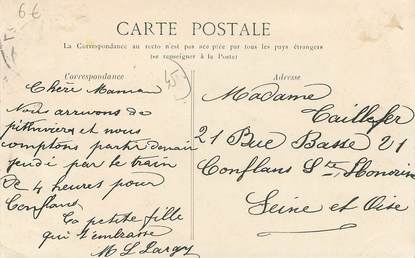 6 €
CARTE POSTALE
La Correspondance au recto n'est pas acceptée par tous les pays étrangers
(se renseigner à la Poste)
Correspondance
Chère Maman
Nous arrivons de
pithiviers et nous
comptons partir demain
jeudi par le train
De 4 heures pour
Conflans
Ta petite fille
qui t'embrasse
M L
Adresse
Madame
Taillefer
21 Rue Basse 21
Conflans Ste Honorine
Seine et Oise